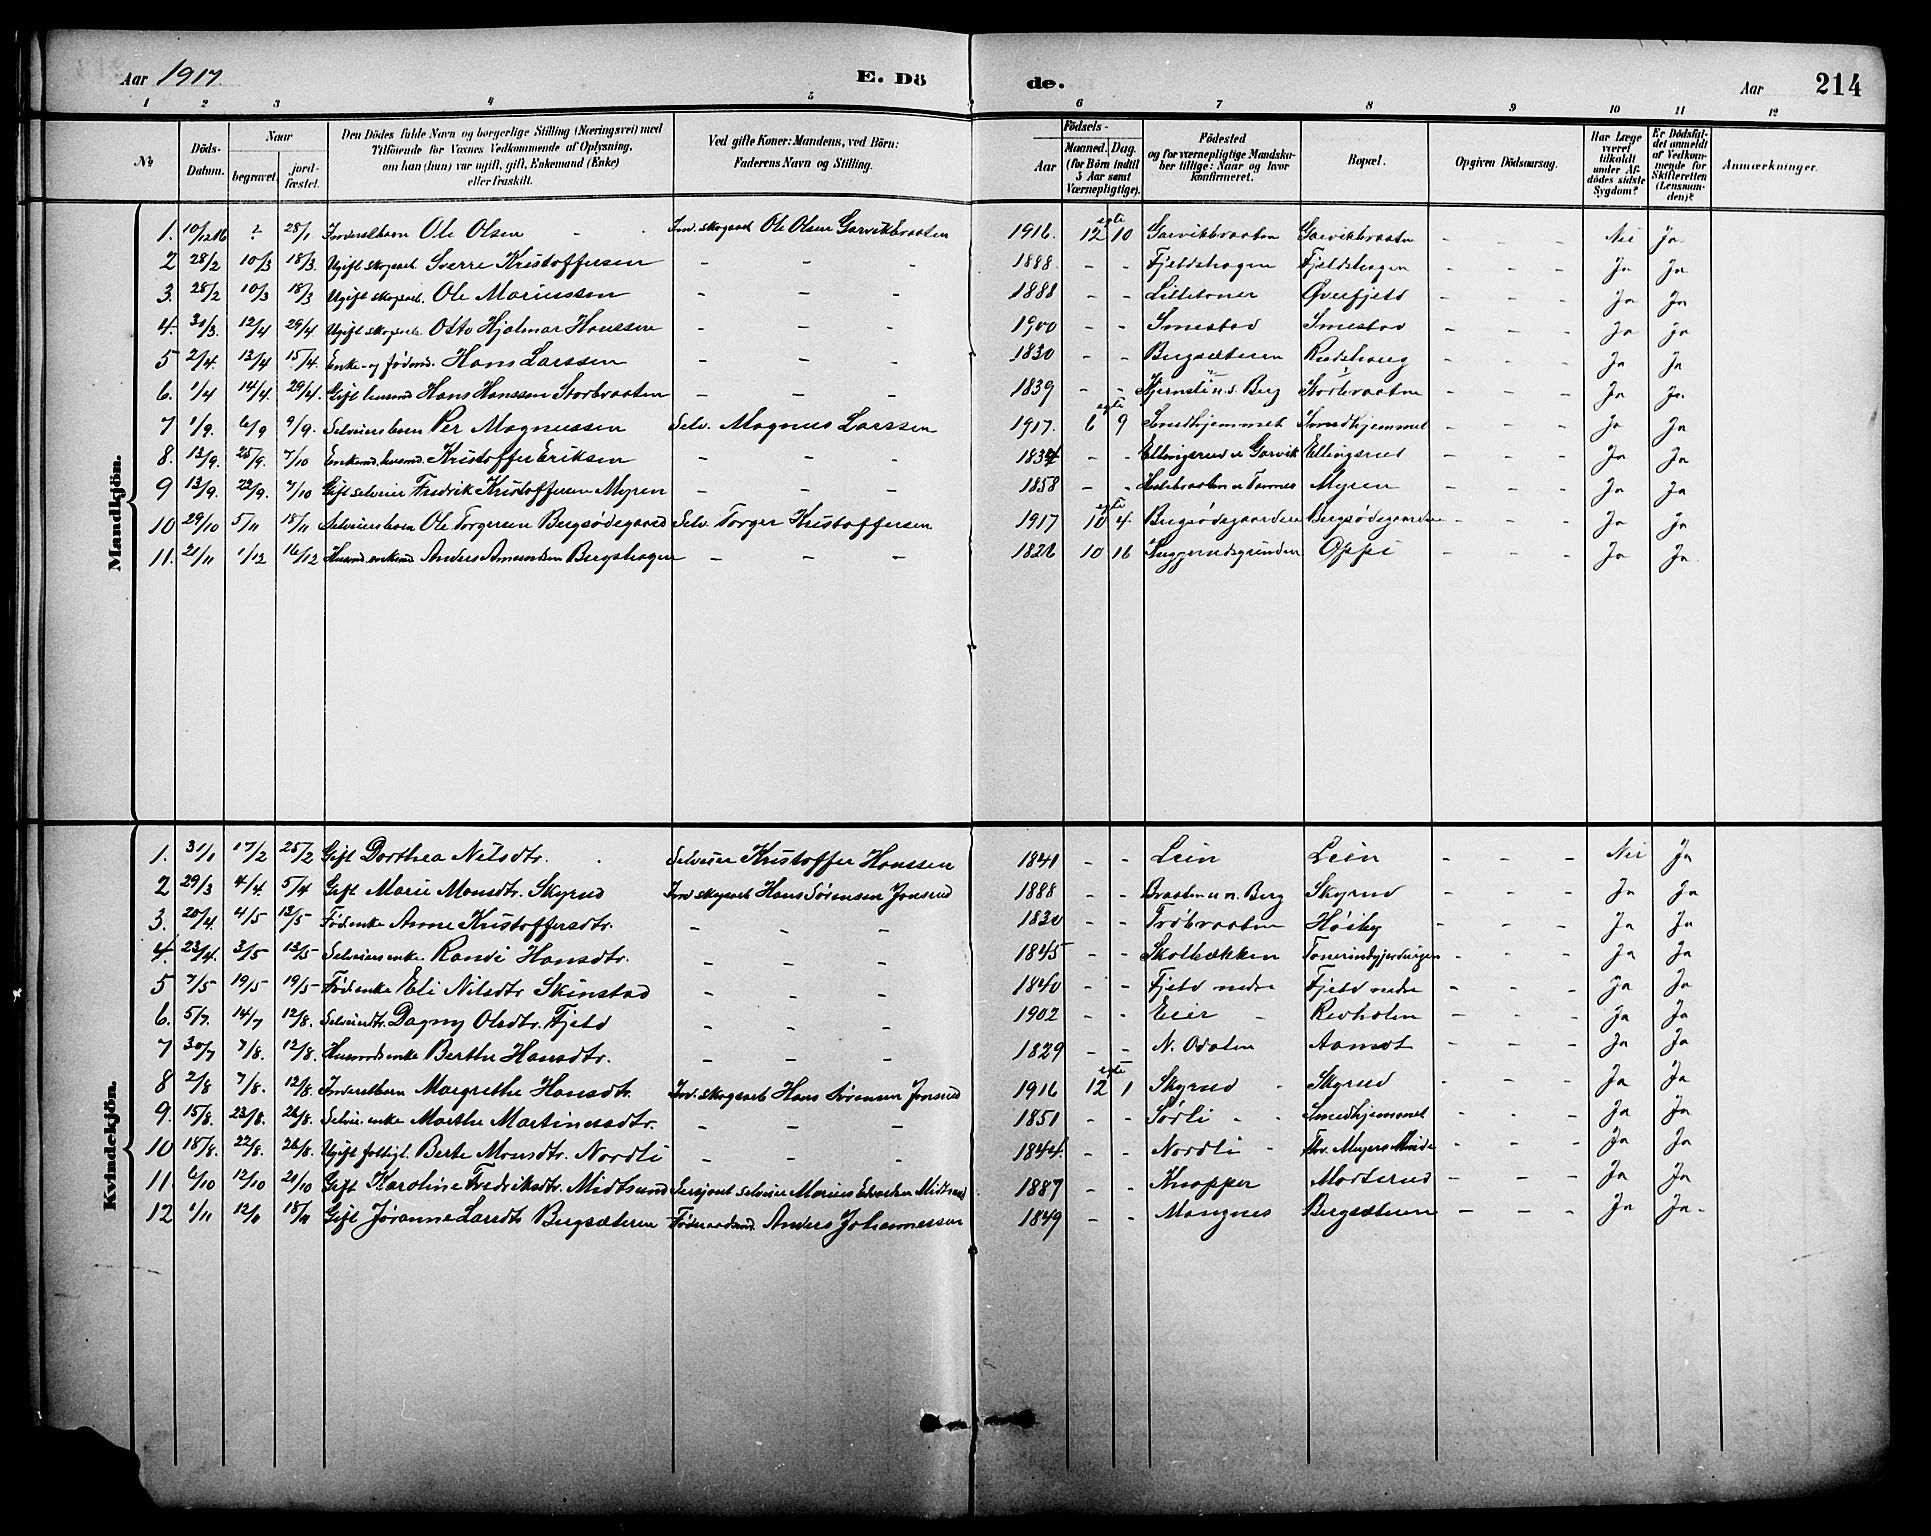 Aar 1917. E. Döde. Aar 214
1 2 3 4 5 6 7 8 9 10 11 12
No
Döds-Datum.
Naar
begravet.
jordfæstet.
Den Dödes fulde Navn og borgerlige Stilling (Næringsvei) med
Tilföiende for Voxnes Vedkommende af Oplysning,
om han (hun) var ugift, gift, Enkemand (Enke)
eller fraskilt.
Ved gifte Koner: Mandens, ved Börn:
Faderens Navn og Stilling.
Födsels-
Aar
Maaned. Dag.
(for Börn indtil
5 Aar samt
Værnepligtige).
Födested
og for værnepligtige Mandskaber tillige: Naar og hvor
konfirmeret.
Bopæl.
Opgiven Dödsaarsag.
Har Læge
været
tilkaldt
under Afdödes sidste
Sygdom?
Er Dödsfaldet anmeldt
af Vedkommende for
Skifteretten
(Lensmanden)?
Anmærkninger.
Mandkjön.
1. 10/12 16 ? 28/1 Inderstbarn Ole Olsen - Ind. skogsarb Ole Olsen Garvikbraaten 1916 12 egte 10 Garvikbraaten Garvikbraaten - - - Nei Ja
2 28/2 10/3 18/3. Ugift skogsarb. Sverre Kristoffersen - - - 1888 - - Fjeldshagen Fjeldshagen - - - Ja Ja
3. 28/2 10/3 18/3 Ugift skogsarb. Ole Mariussen - - - 1888 - - Lilletoner Øverfjeld - - - Ja Ja
4. 31/3. 12/4 29/4 Ugift skogsarb Otto Hjalmar Hanssen - - - 1900 - - Smestad Smestad - - - Ja Ja
5 2/4. 13/4 15/4. Enke- og födmd. Hans Larssen - - - 1830 - - Bergsæteren Rudshaug - - - Ja Ja
6. 1/4 14/4 29/4. Gift husmd Hans Hanssen Storbraaten - - - 1839 - - Hjernsli u. s. Berg Storbraaten - - - Ja Ja
7 1/9. 6/9 9/9. Selveiersbarn Per Magnussen Selv. Magnus Larssen 1917. 6 egte 9 Smedhjemmet Smedhjemmet - - - Ja Ja
8. 13/9. 25/9. 7/10 Enkemd. husmd. Kristoffer Eriksen - - - 1834 - - Ellingsrud u Garvik Ellingsrud - - - Ja Ja
9 13/9. 22/9. 7/10 Gift selveier Fredrik Kristoffersen Myren - - - 1858 - - Myren - - - Ja Ja
10 29/10 5/11 18/11 Selveiersbarn Ole Torgersen Bergsödegaard Selv. Torger Kristoffersen 1917 10 egte 4. Bergsödegaarden Bergsödegaarden - - - Ja Ja
11. 21/11 1/12 16/12 Husmd. enkemd Anders Amundsen Bergshagen - - - 1826 10 16 Kuggerudsgrunden Oppi - - - Ja Ja
Kvindekjön.
1. 31/1 17/2 25/2 Gift Dorthea Nilsdtr. Selveier Kristoffer Hanssen 1841 - - Lein Lein - - - Nei Ja
2 29/3 4/4 5/4 Gift Marie Monsdtr. Skyrud Ind skogsarb Hans Sørensen Jonsrud 1888 - - Braaten u. n. Berg Skyrud - - - Ja Ja
3. 20/4. 4/5 13/5 Föd. enke Anne Kristoffersdtr. - - - 1830 - - Trøbraaten Høiby - - - Ja Ja
4. 23/4. 3/5 13/5 Selveiersenke Randi Hansdtr. - - - 1845 - - Skolbækken - - - Ja Ja
5 7/5 19/5 19/5 Föd. enke Eli Nilsdtr Skinstad - - - 1840 - - Fjeld nedre Fjeld nedre - - - Ja Ja
6. 5/7. 14/7 12/8. Selveierdtr. Dagny Olsdtr. Fjeld - - - 1902 - - Eier - Revholen - - - Ja Ja
7 30/7 7/8. 12/8. Husmandsenke Berthe Hansdtr. - - - 1829 - - N. Odalen Aamot - - - Ja Ja
8 2/8 7/8. 12/8 Inderstbarn Margrethe Hansdtr. Ind. skogsarb Hans Sørensen Jonsrud 1916 12 egte 1 Skyrud Skyrud - - - Ja Ja
9. 15/8. 23/8. 26/8. Selveier. enke Marthe Martinusdtr. - - - 1851 - - Sørli - - Smedhjemmet - - - Ja Ja
10 18/8. 22/8. 26/8. Ugift fattigl. Berte Monsdtr. Nordli - - - 1844. - - Nordli - Thv. Meyers Minde - - - Ja Ja
11. 6/10 12/10 21/10 Gift Karoline Fredriksdtr. Midtsund Sersjant selveier Marius Edvardsen Midtsund 1887 - - Knapper Masterud - - - Ja Ja
12 1/11 12/11 18/11 Gift Jøranne Larsdtr Bergsæteren Föderaadsmd. Anders Johannessen 1849 - - Mangnes Bergsæteren - - - Ja Ja